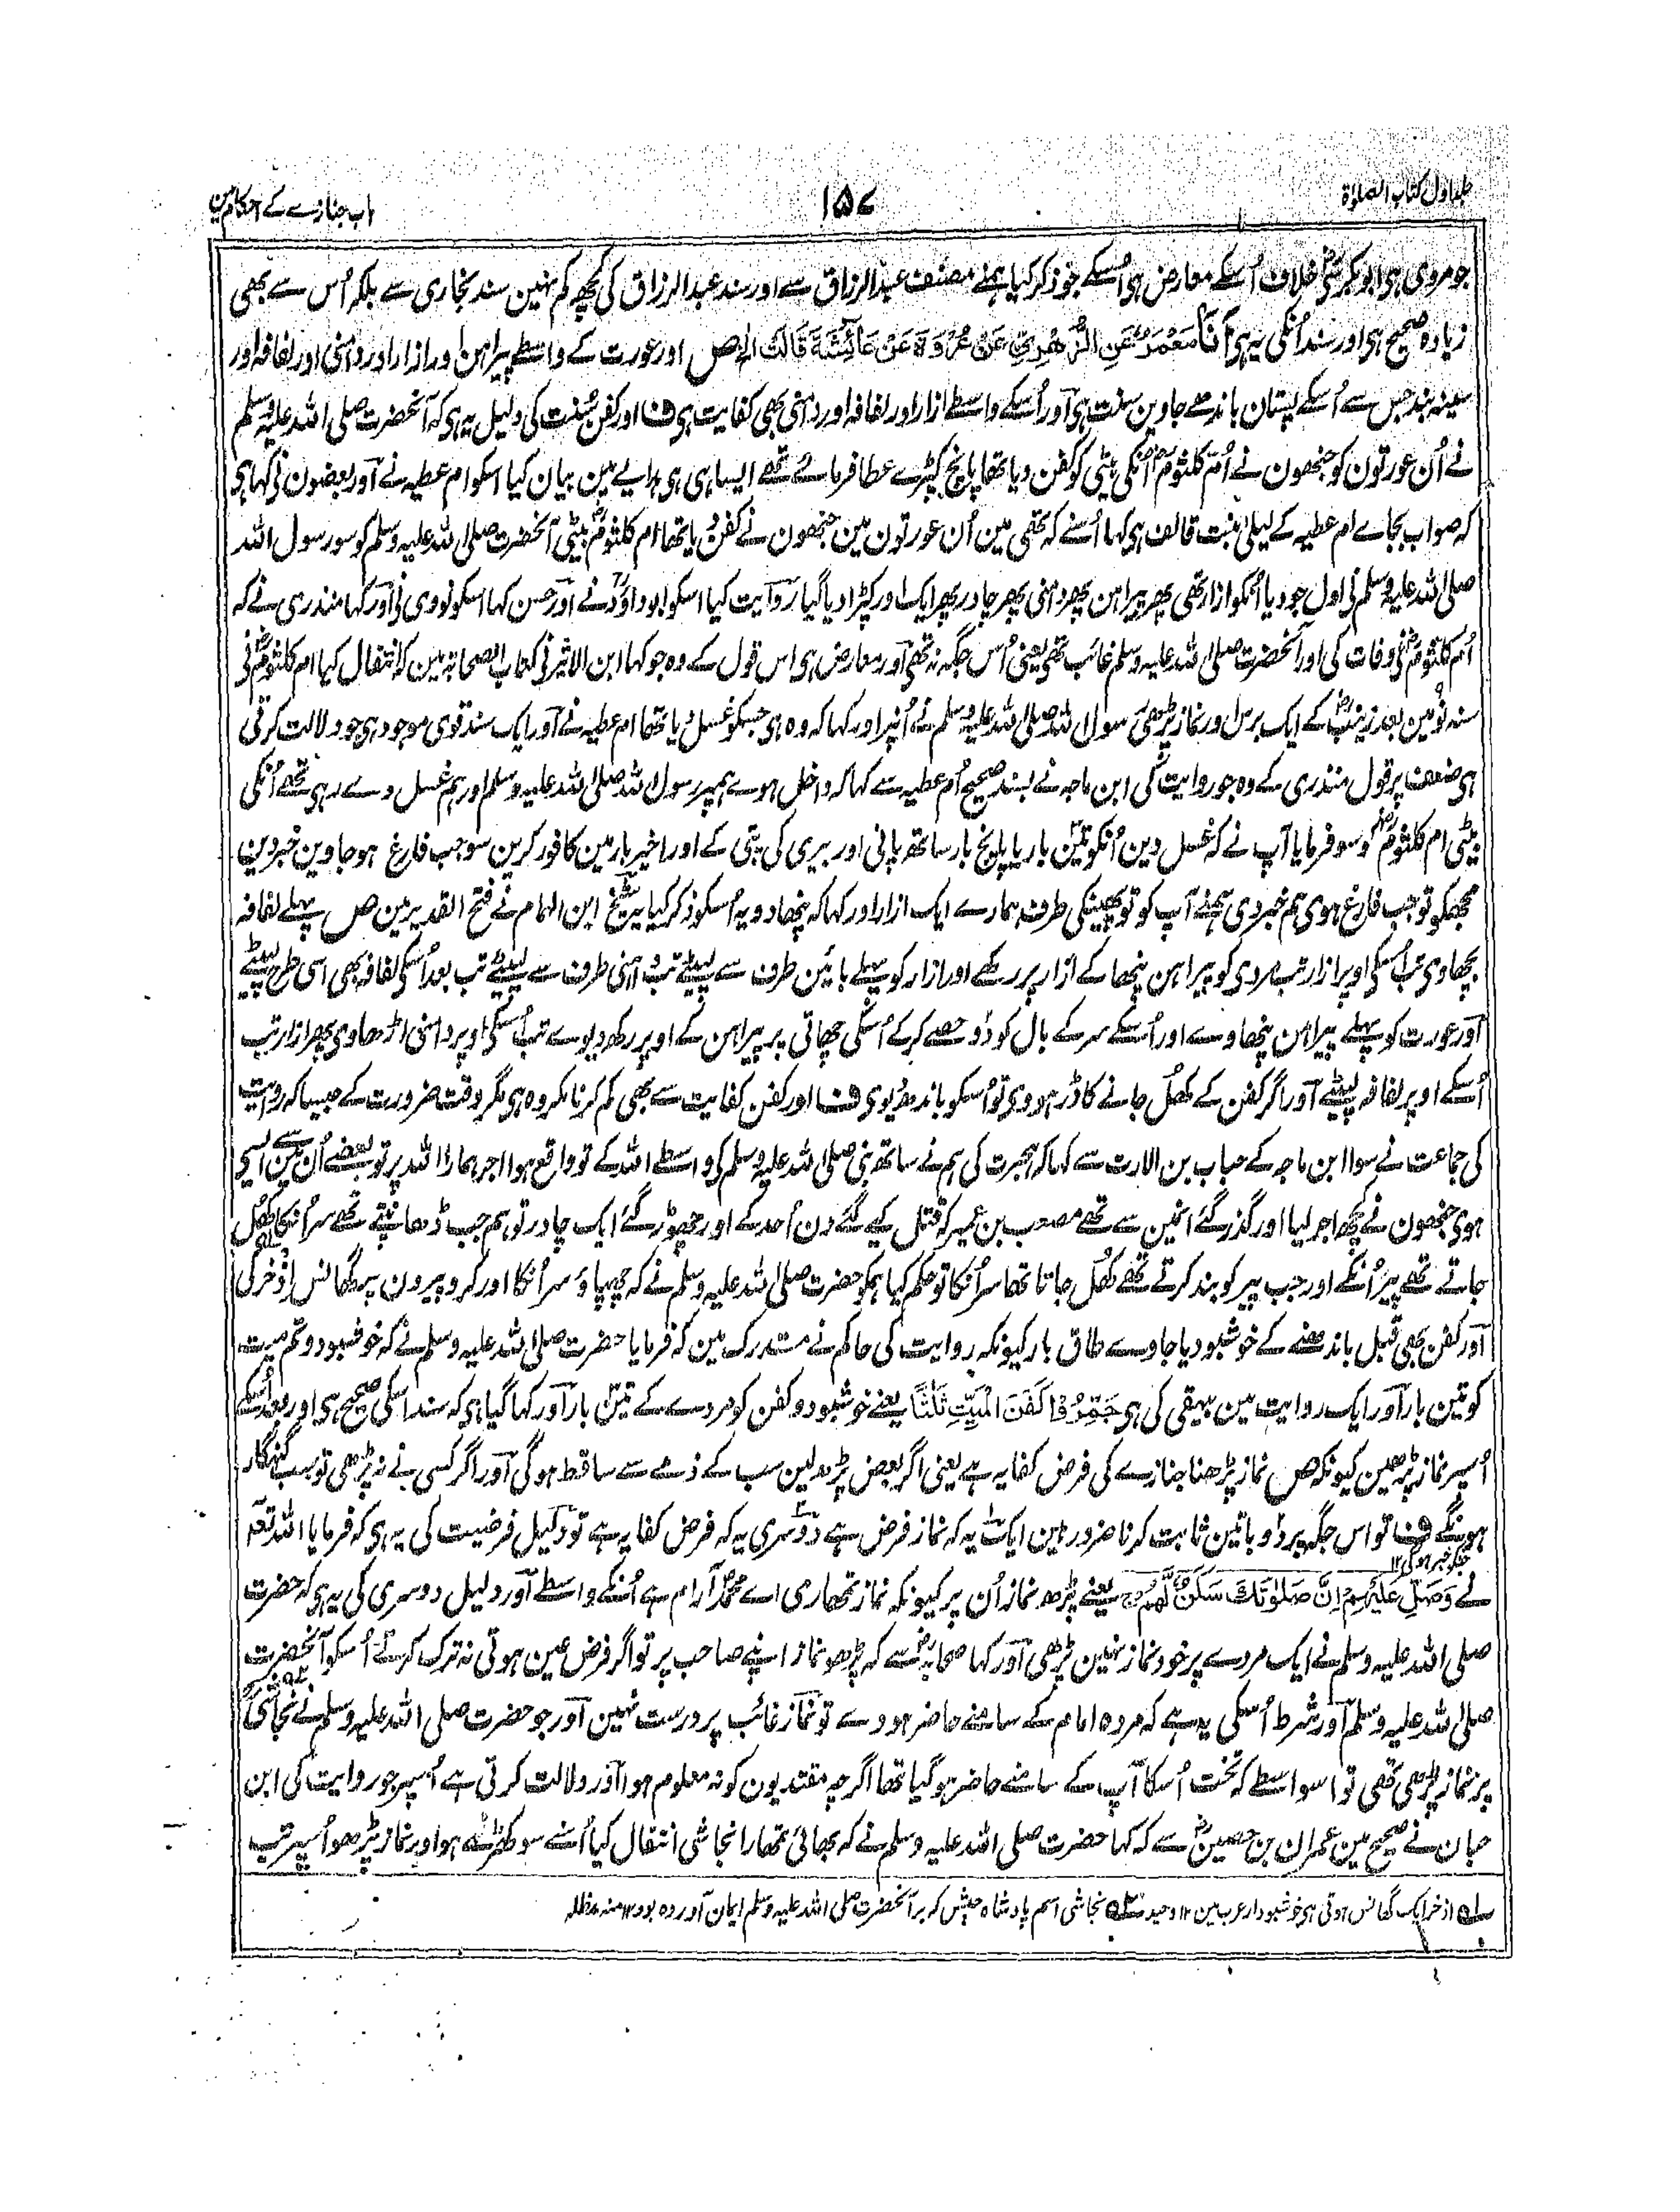 جلد اول کتاب الصلوٰۃ
۱۵۷
باب جنازے کے احکام مین
جو مروی ہی ابوبکرؓ سے خلاف اُسکے معارض ہی اُسکے جو ذکر کیا ہمنے مصنف عبدالرزاق سے اور سند عبدالرزاق کی کچھ کم نہین سند بخاری سے بلکہ اُس سے بھی
زیادہ صحیح ہی اور سند اُنکی یہ ہی اَنَا مَعْمَرٌ عَنِ الزُّھْرِیِّ عَنْ عُرْوَۃَ عَنْ عَائِشَۃَ قَالَتْ الخ ص اور عورت کے واسطے پیراہن اور ازار اور دامنی اور لفافہ اور
سینہ بند جس سے اُسکے پستان باندھے جاوین سنت ہی اور اُسکے واسطے ازار اور لفافہ اور دامنی بھی کفایت ہی ف اور کفن سُنت کی دلیل یہ ہی کہ آنحضرت صلی اللہ علیہ وسلم
نے اُن عورتون کو جنھون نے اُمّ کلثومؓ اُنکی بیٹی کو کفن دیا تھا پانچ کپڑے عطا فرمائے تھے ایسا ہی ہی ہدایے مین بیان کیا اسکو ام عطیہ نے اور بعضون نی کہا ہی
کہ صواب بجاے ام عطیہ کے لیلی بنت قائف ہی کہا اُسنے کہ تھی مین اُن عورتون مین جنھون نے کفن دیا تھا ام کلثومؓ بیٹی آنحضرت صلی اللہ علیہ وسلم کو سو رسول اللہ
صلی اللہ علیہ وسلم نی اول جو دیا ہمکو ازار تھی پھر پیراہن پھر دامنی پھر چادر پھر ایک اور کپڑا دیا گیا روایت کیا اسکو ابو داؤد نے اور حسن کہا اسکو نووی نی اور کہا منذری نے کہ
اُم کلثومؓ نی وفات کی اور آنحضرت صلی اللہ علیہ وسلم غائب تھی یعنی اُس جگہ نہ تھی اور معارض ہی اس قول کے وہ جو کہا ابن الاثیر نی کتاب الصحابۃ مین کہ انتقال کیا ام کلثومؓ نی
سنہ نو مین بعد زینبؓ کے ایک برس اور نماز پڑھی رسول اللہ صلی اللہ علیہ وسلم نے اُنپر اور کہا کہ وہ ہی جسکو غسل دیا تھا ام عطیہ نے اور ایک سند قوی موجود ہی جو دلالت کرتی
ہی ضعف پر قول منذری کے وہ جو روایت کی ابن ماجہ نے بسند صحیح اُم عطیہ سے کہا کہ داخل ہوے ہمپر رسول اللہ صلی اللہ علیہ وسلم اور ہم غسل دے رہی تھے اُنکی
بیٹی ام کلثومؓ کو سو فرمایا آپ نے کہ غسل دین اُنکو تین بار یا پانچ بار ساتھ پانی اور بیری کی پتی کے اور اخیر بار مین کافور کرین سو جب فارغ ہو جاوین خبر دین
مجھکو تو جب فارغ ہوی ہم خبر دی ہمنے آپ کو تو پھینکی طرف ہمارے ایک ازار اور کہا کہ پنھادو یہ اُسکو ذکر کیا یہ شیخ ابن الہمام نے فتح القدیر مین ص پہلے لفافہ
بچھاوی تب اُسکی اوپر ازار تب مردی کو پیراہن پنھا کے ازار پر رکھے اور ازار کو پہلے بائین طرف سے لپیٹے تب داہنی طرف سے لپیٹے تب بعد اُسکی لفافہ بھی اسی طرح لپیٹے
اور عورت کو پہلے پیراہن پنھاوے اور اُسکے سر کے بال کو دو حصے کرکے اُسکی چھاتی پر پیراہن کے اوپر رکھ دیوے تب اُسکی اوپر دامنی اڑھاوی پھر ازار تب
اُسکے اوپر لفافہ لپیٹے اور اگر کفن کے کھل جانے کا ڈر ہووی تو اُسکو باندھ دیوی ف اور کفن کفایت سے بھی کم کرنا مکروہ ہی مگر وقت ضرورت کے جیسا کہ روایت
کی جماعت نے سوا ابن ماجہ کے خباب بن الارت سے کہا کہ ہجرت کی ہم نے ساتھ نبی صلی اللہ علیہ وسلم کی واسطے اللہ کے تو واقع ہوا اجر ہمارا اللہ پر تو بعضے اُن مین سے ایسے
ہوی جنھون نے کچھ اجر لیا اور گذر گئے انمین سے تھے مصعب بن عمیر کہ قتل کیے گئے دن اُحد کے اور چھوڑ گئے ایک چادر تو ہم جب ڈھانپتے تھے سر اُنکا کھل
جاتے تھے پیر اُنکے اور جب پیر کو بند کرتے تھے کھل جاتا تھا سر اُنکا تو حکم کیا ہمکو حضرت صلی اللہ علیہ وسلم نے کہ چھپاؤ سر اُنکا اور کرو پیرون پر گھانس اذخر کی
اور کفن بھی قبل باندھنے کے خوشبو دیا جاوے طاق بار کیونکہ روایت کی حاکم نے مستدرک مین کہ فرمایا حضرت صلی اللہ علیہ وسلم نے کہ خوشبو دو تم میت
کو تین بار اور ایک روایت مین بیہقی کی ہی جَمِّرُوْا کَفَنَ الْمَیِّتِ ثَلٰثًا یعنے خوشبو دو کفن کو مردے کے تین بار اور کہا گیا ہی کہ سند اسکی صحیح ہی اور بعد اُسکے
اُسپر نماز پڑھین کیونکہ ص نماز پڑھنا جنازے کی فرض کفایہ ہے یعنی اگر بعض پڑھ لین سب کے ذمے سے ساقط ہوگی اور اگر کسی نے نہ پڑھی تو سب گنہگار
ہونگے ف تو اس جگہ پر دو باتین ثابت کرنا ضرور ہین ایک یہ کہ نماز فرض ہے دوسری یہ کہ فرض کفایہ ہے تو دلیل فرضیت کی یہ ہی کہ فرمایا اللہ تعہ
نے وَصَلِّ عَلَیْہِمْ اِنَّ صَلٰوتَکَ سَکَنٌ لَّھُمْ یعنے پڑھ نماز اُن پر کیونکہ نماز تمھاری اے محمدؐ آرام ہے اُنکے واسطے اور دلیل دوسری کی یہ ہی کہ حضرت
صلی اللہ علیہ وسلم نے ایک مردے پر خود نماز نہین پڑھی اور کہا صحابہؓ سے کہ پڑھو نماز اپنے صاحب پر تو اگر فرض عین ہوتی نہ ترک کرتے اُسکو آنحضرت
صلی اللہ علیہ وسلم اور شرط اُسکی یہ ہے کہ مردہ امام کے سامنے حاضر ہووے تو نماز غائب پر درست نہین اور جو حضرت صلی اللہ علیہ وسلم نے نجاشی
پر نماز پڑھی تھی تو اسواسطے کہ تخت اُسکا آپ کے سامنے حاضر ہو گیا تھا اگرچہ مقتدیون کو نہ معلوم ہوا اور دلالت کرتی ہے اُسپر جو روایت کی ابن
حبان نے صحیح مین عمران بن حصینؓ سے کہ کہا حضرت صلی اللہ علیہ وسلم نے کہ بھائی تمھارا نجاشی انتقال کیا اُسنے سو کھڑے ہو اور نماز پڑھو اُسپر تب
لہ اذخر ایک گھانس ہوتی ہی خوشبودار عرب مین ۱۲ وحید لہ نجاشی اسم پادشاہ حبش کہ بر آنحضرت صلی اللہ علیہ وسلم ایمان آوردہ بود ۱۲ منہ مدظلہ